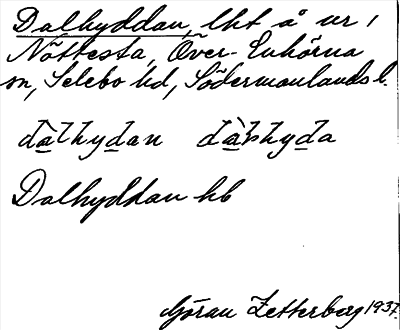 Dalhyddan, lht å nr 1
Nöttesta, Över-Enhörna
sn, Selebo hd, Södermanlands l.
dàlhydan dàlhyda
Dalhyddan hb
Göran Zetterberg 1937.